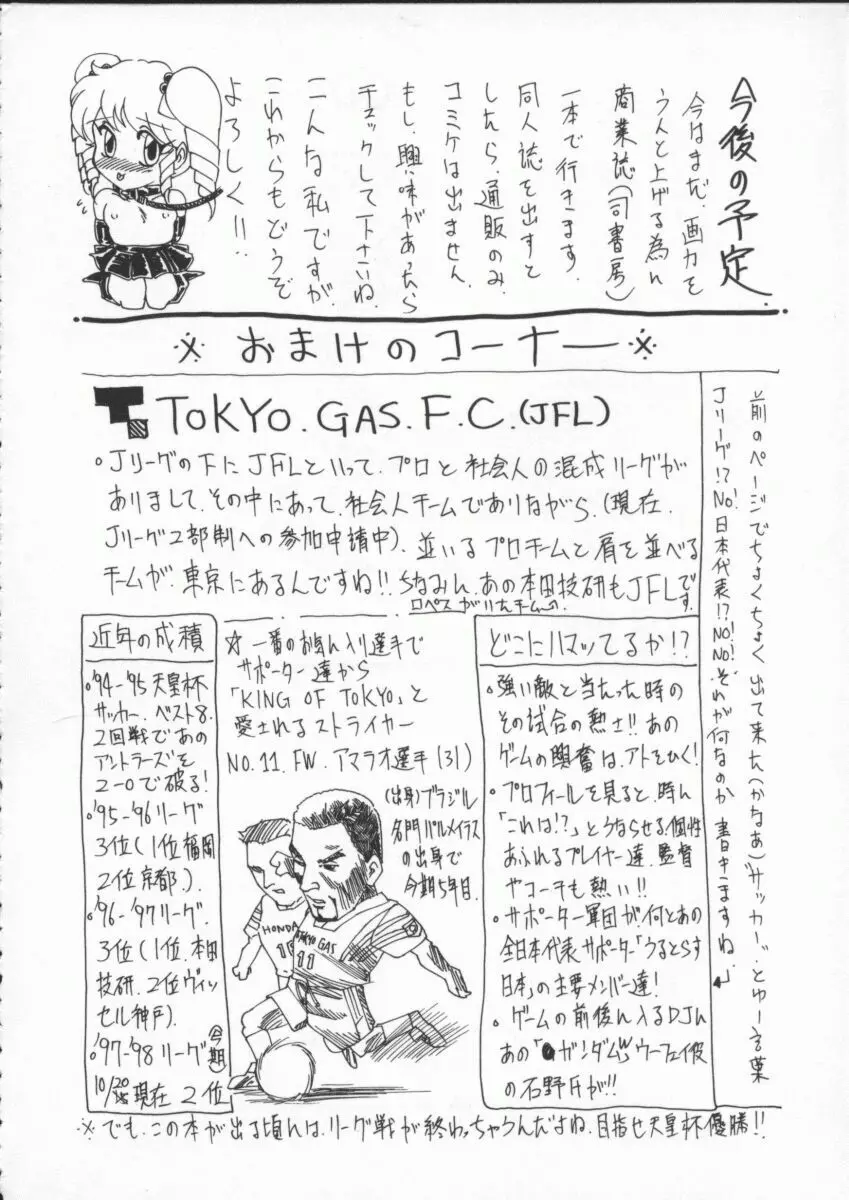 今後の予定
今はまだ、画力を
うんと上げる為に
商業誌(司書房)
一本で行きます。
同人誌を出すと
したら、通販のみ
コミケは出ません。
もし、興味があったら
チェックして下さいね。
こんな私ですが
これからもどうぞ
よろしく!!
※ おまけのコーナー ※
前のページでちょくちょく出て来た(かなあ)"サッカー"とゆー言葉
Jリーグ!? NO! 日本代表!? NO! NO! NO! それが何なのか書きますね。
TOKYO.GAS.F.C.(JFL)
○Jリーグの下にJFLといって、プロと社会人の混成リーグが
ありまして、その中にあって、社会人チームでありながら、(現在
Jリーグ2部制への参加申請中)、並いるプロチームと肩を並べる
チームが、東京にあるんですね!! ちなみに、あの本田技研もJFLです。
ロペスがいたチーム
近年の成積
○'94-'95天皇杯
サッカー、ベスト8。
2回戦であの
アントラーズを
2-0で破る!
○'95-'96リーグ
3位(1位福岡
2位京都)。
○'96-'97リーグ
3位(1位本田
技研、2位ヴィッ
セル神戸)。
○'97-'98リーグ(今期)
10/20現在 2位
☆一番のお気に入り選手で
サポーター達から
「KING OF TOKYO」と
愛されるストライカー
NO.11.FW.アマラオ選手(31)
(出身)ブラジル
名門パルメイラス
の出身で
今期5年目。
HONDA
10
TOKYO GAS
11
どこにハマッてるか!?
○強い敵と当たった時の
その試合の熱さ!! あの
ゲームの興奮は、アトをひく!
○プロフィールを見ると、時に
「これは!?」とうならせる個性
あふれるプレイヤー達、監督
やコーチも熱い!!
○サポーター軍団が、何とあの
全日本代表サポーター「うるとらす
日本」の主要メンバー達!
○ゲームの前後に入るDJに
あの「ガンダムW」ウーフェイ役
の石野氏が!!
※でも、この本が出る頃には、リーグ戦が終わっちゃうんだよね、目指せ天皇杯優勝!!